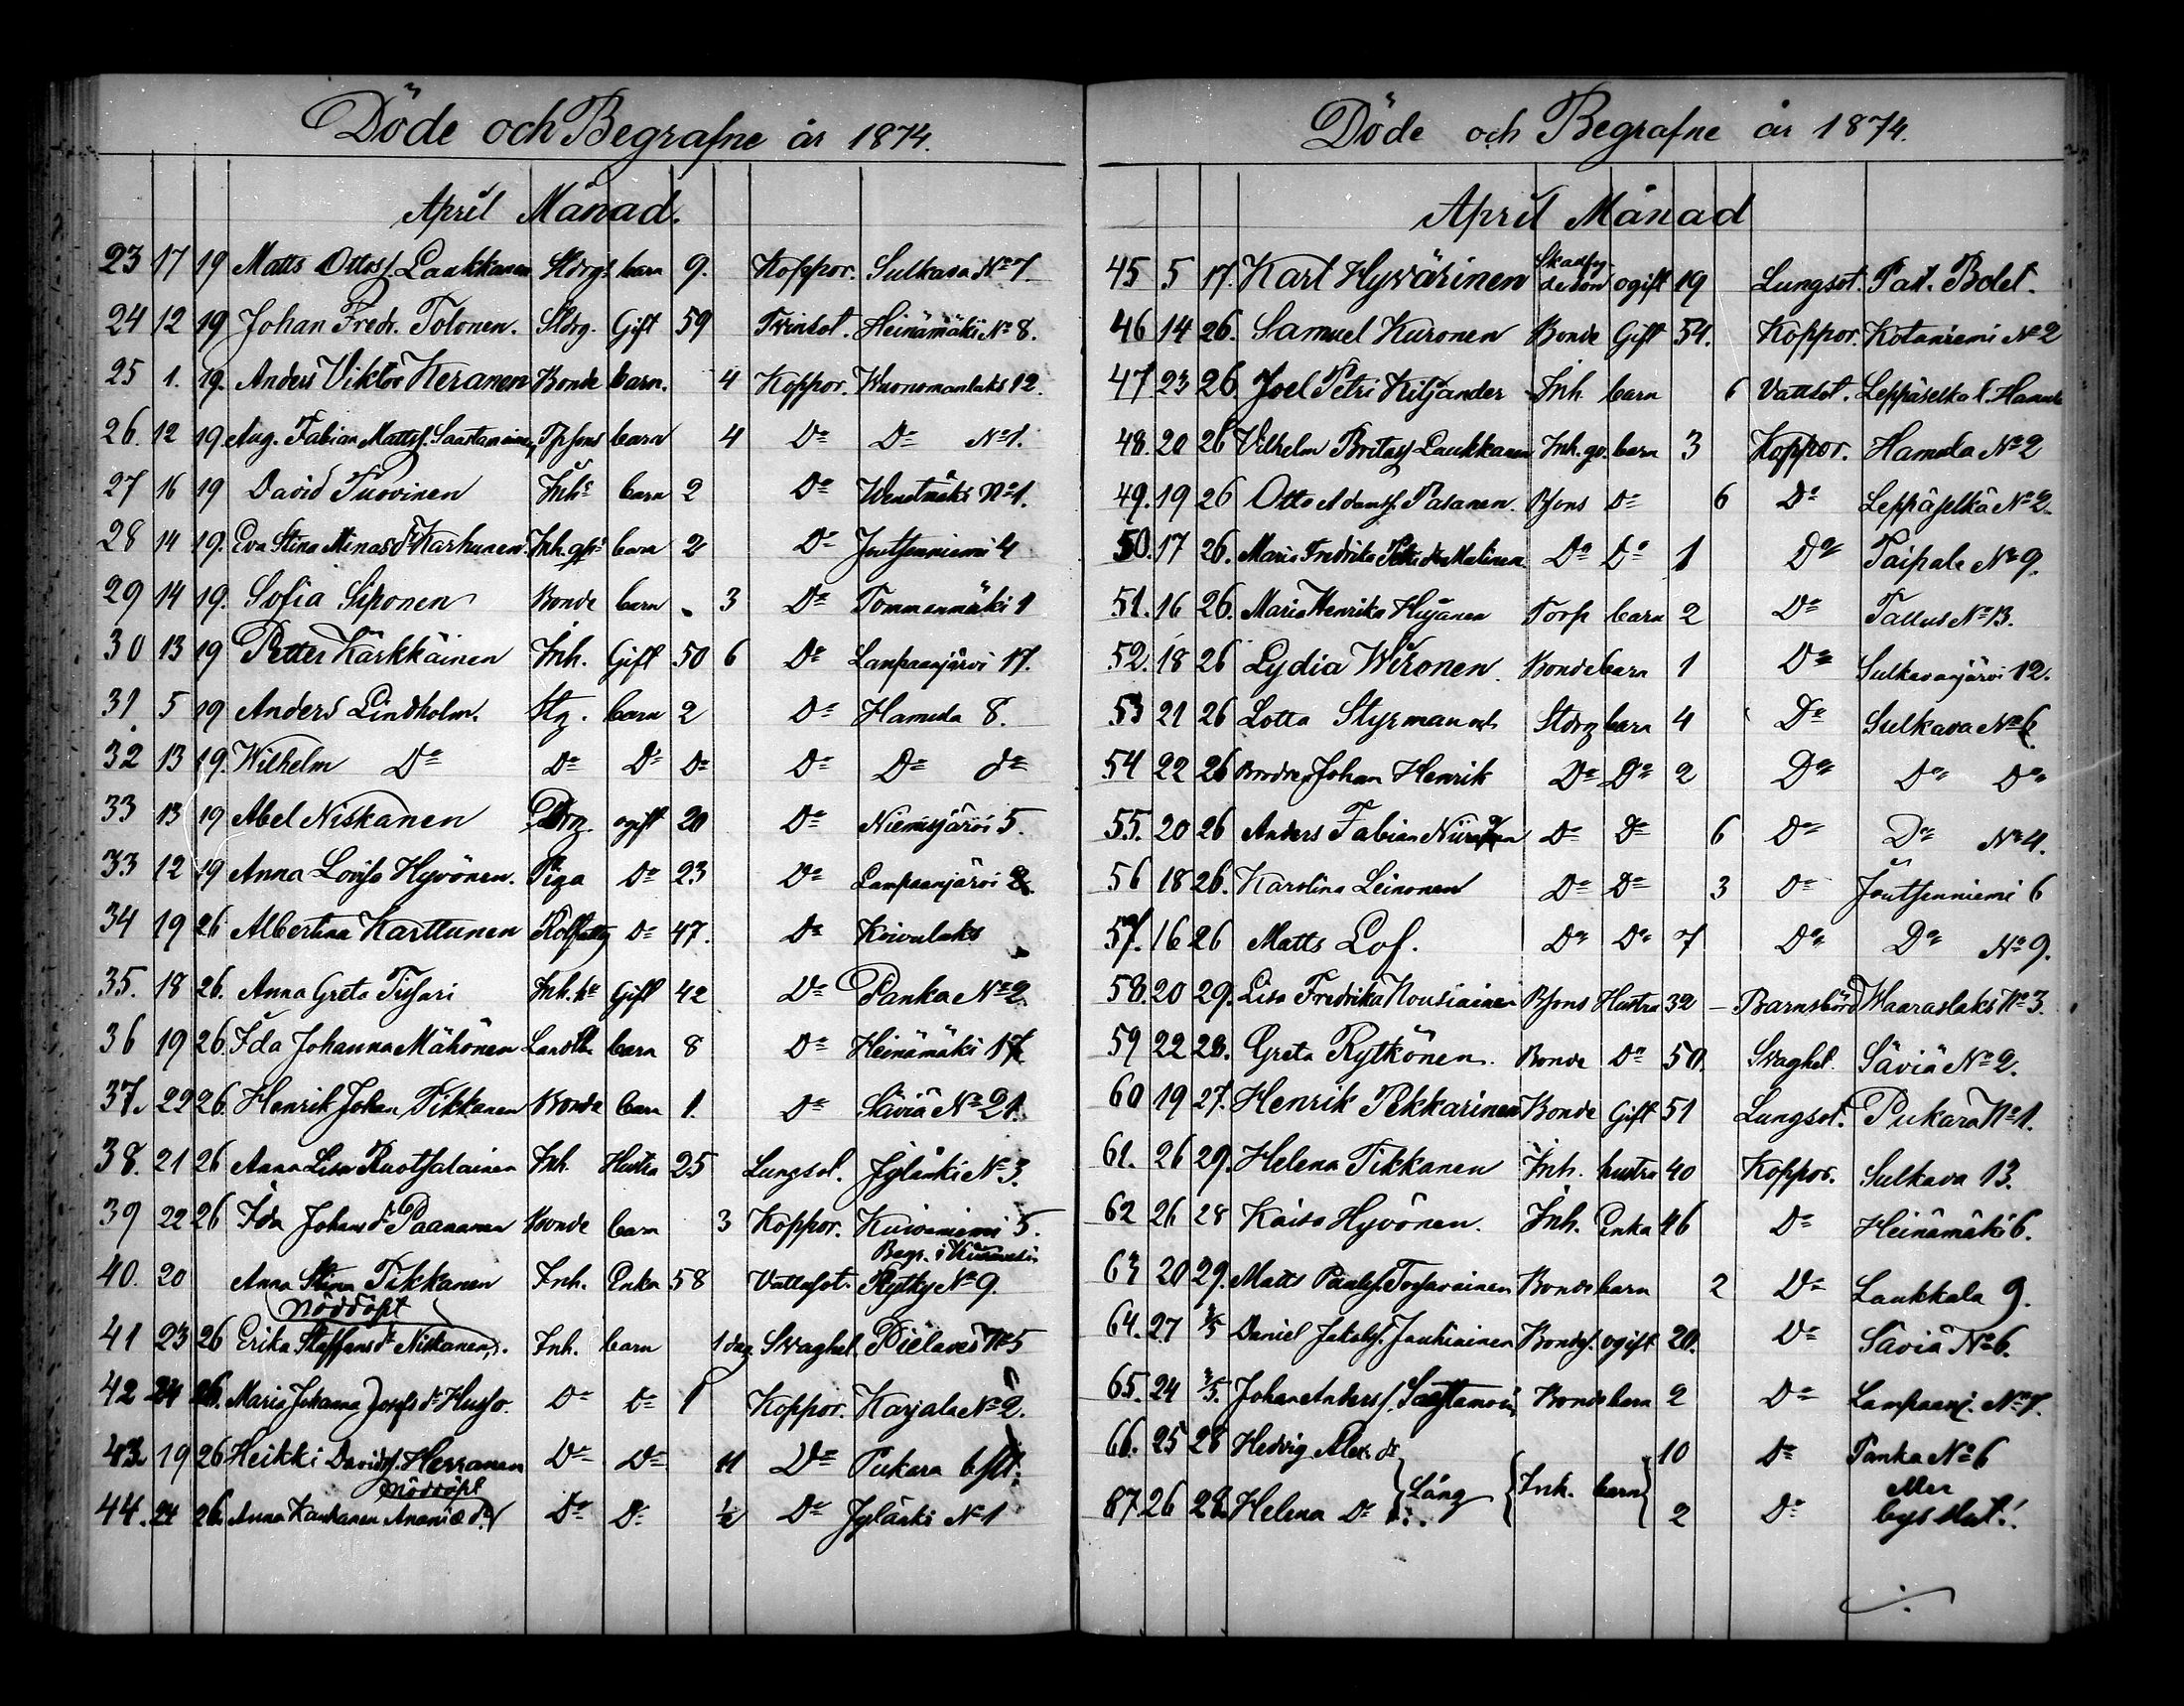 Döde och Begrafne år 1874.
April Månad.
23 17 19 Matts Ottoss. Laukkanen Stdrgs barn 9. Koppor. Sulkava No 7.
24 12 19 Johan Fredr. Tolonen. Stdrg. Gift 59 Tvinsot. Heinämäki No 8.
25 1. 19. Anders Viktor Keranen Bonde barn. 4 Koppor. Wuonomanlaks 12.
26. 12 19 Aug. Fabian Mattss. Saastamoinen barn 4 Do Do No 1.
27 16 19 David Tuovinen Inhs barn 2 Do No 1.
28 14 19. Eva Stina Minas dr Karhunen Inh. barn 2 Do Joutsenniemi 4
29 14 19. Sofia Siponen Bonde barn 3 Do Tommanmäki 1
30 13 19 Petter Kärkkäinen Inh. Gift 50 6 Do Lampaanjärvi 17.
31 5 19 Anders Lindholm. Stg. barn 2 Do Hamula 8.
32 13 19. Wilhelm Do Do Do Do Do Do do
33 13 19 Abel Niskanen ogift 20 Do Niemisjärvi 5.
33 12 19 Anna Lovisa Hyvönen. Piga Do 23 Do Lampaanjärvi 2.
34 19 26 Albertina Karttunen Do 47. Do Koivulaks
35. 18 26. Anna Greta Gift 42 Do Panka No 2.
36 19 26. Ida Johanna Mähönen barn 8 Do Heinämäki 17
37. 22 26. Henrik Johan Tikkanen Bonde barn 1. Do Säviä No 21.
38. 21 26 Anna Lisa Ruotsalainen Inh. Hustru 25 Lungsot. Jylänki No 3.
39 22 26 Ida Johans dr Paananen Bonde barn 3 Koppor. Kuivaniemi 5.
Begr. i
40. 20 Anna Stina Tikkanen Inh. Enka 58 Vattusot. Rytky No 9.
(nöddöpt)
41 23 26 Erika Staffans dr Niskanen. Inh. barn 1 dag Svaghet. Pielavesi No 5
42 24 26. Maria Johanna Josefs dr Husso Do Do 1 Koppor. Karjala No 2.
43. 19 26 Heikki Davidss. Herranen Do Do 11 Do Pukara 6
nöddöpt
44. 24 26. Anna Kauhanen Ananiæ dr Do Do ½ Do Jylänki No 1
Döde och Begrafne år 1874.
April Månad
45 5 17. Karl Hyvärinen ogift 19 Lungsot.
46 14 26. Samuel Kuronen Bonde Gift 54. Koppor. Kotaniemi No 2
47 23 26. Joel Petri Kiljander Inh. barn 6 Vattsot. Leppäselkä
48. 20 26 Vilhelm Britass. Laukkanen Inh. barn 3 Koppor. Hamula No 2
49. 19 26 Otto Adamss. Pasanen. Do 6 Do Leppäselkä No 2.
50. 17 26. Maria Fredrika Malinen Do Do 1 Do Taipale No 9.
51. 16 26. Maria Henrika Torp barn 2 Do Tallus No 13.
52. 18 26 Lydia Wironen. Bonde barn 1 Do Sulkavanjärvi 12.
53 21 26 Lotta Styrman Stdrg barn 4 Do Sulkava No 6.
54 22 26 Johan Henrik Do Do 2 Do Do Do
55. 20 26 Anders Fabian Do Do 6 Do Do No 4.
56 18 26. Karolina Leinonen Do Do 3 Do Joutsenniemi 6
57. 16 26 Matts Lof. Do Do 7 Do Do No 9.
58. 20 29. Lisa Fredrika Nousiainen Hustru 32 – Barnsbörd Waaraslaks No 3.
59 22 28. Greta Rytkönen. Bonde Do 50. Svaghet. Säviä No 2.
60 19 27. Henrik Pekkarinen Bonde Gift 51 Lungsot. Pukara No 1.
61. 26 29. Helena Tikkanen Inh. hustru 40 Koppor. Sulkava 13.
62 26 28 Kaisa Hyvönen. Inh. Enka 46 Do Heinämäki 6.
63 20 29. Matts Paulss. Tossavainen Bonde barn 2 Do Laukkala 9.
64. 27 3/5 Daniel Jakobss. Jauhiainen Bondes. ogift 20. Do Säviä No 6.
65. 24 3/5. Johan Anderss. Saastamoin Bonde barn 2 Do Lampaanj. No 7.
66. 25 28 Hedvig Alex. dr 10 Do Panka No 6
Lång Inh. barn
87 26 28. Helena Do 2 Do